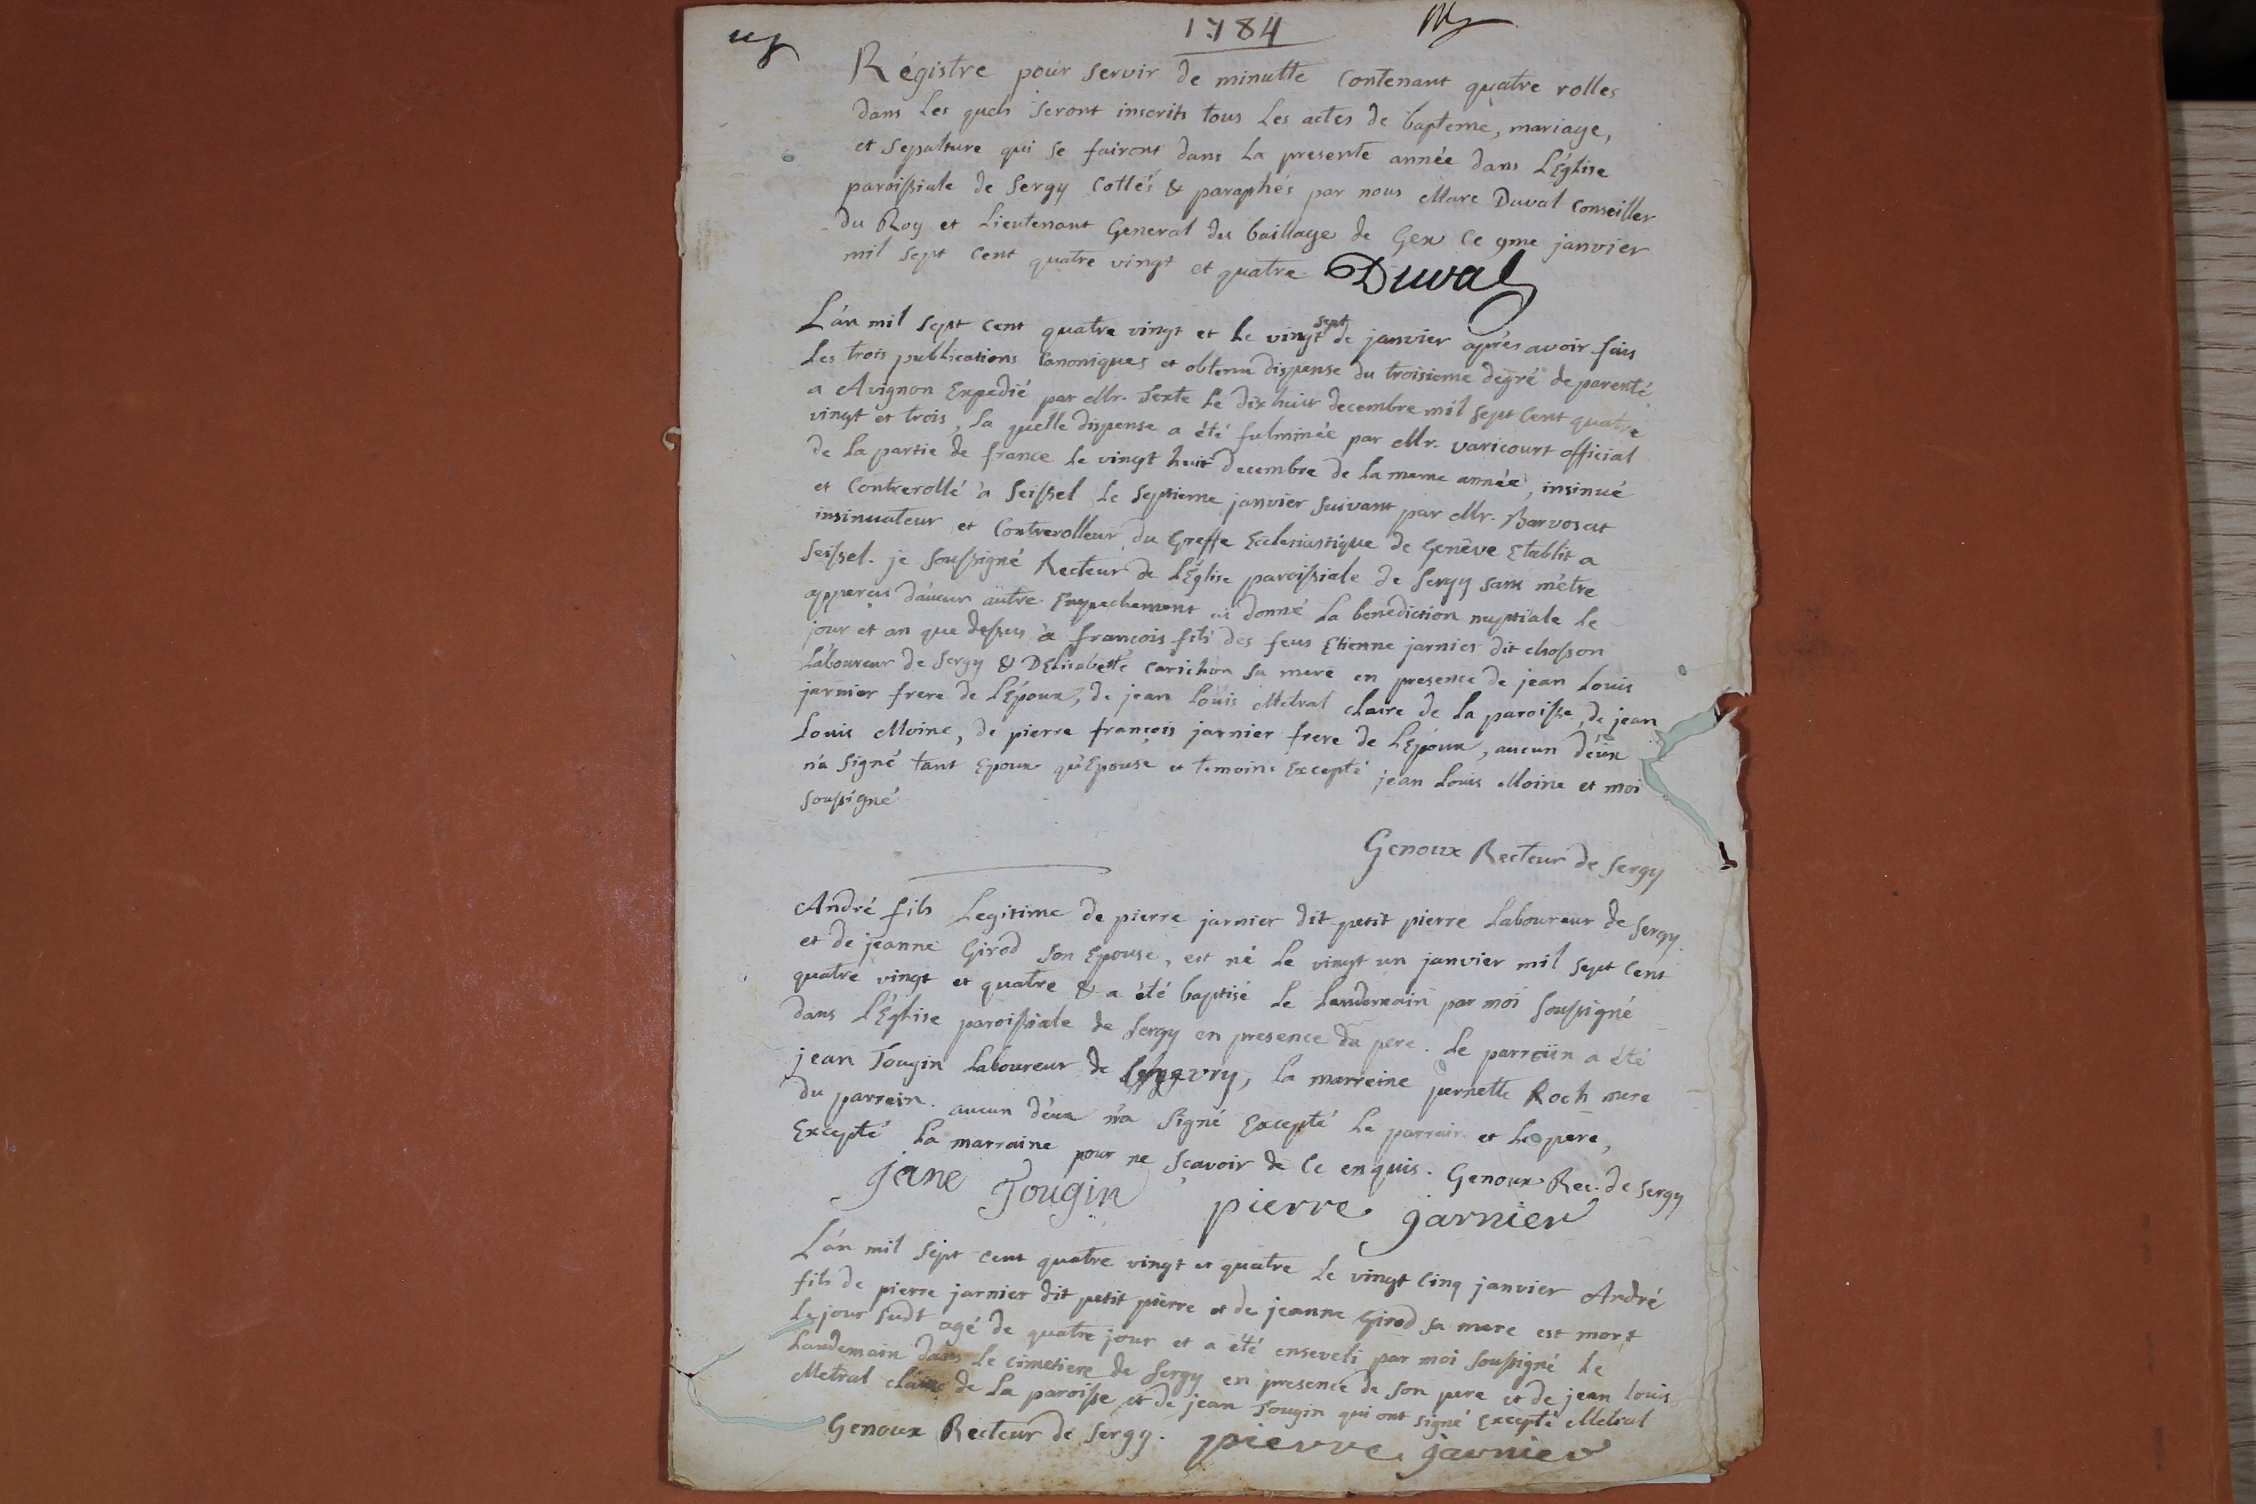 1784
Régistre pour servir de minutte Contenant quatre rolles
dans Les quels seront inscrits tous Les actes de bapteme, mariage,
et Sepulture qui se fairont dans La presente année dans L'Église
paroissiale de Sergy Cottés & paraphés par nous Marc Duval Conseiller
du Roy et Lieutenant General du baillage de Gex Ce 9me janvier
mil sept Cent quatre vingt et quatre. Duval
L'án mil sept Cent quatre vingt et Le vingt sept de janvier après avoir fais
Les trois publications Canoniques et obtenu dispense du troisieme degré de parenté
a Avignon Expedié par Mr. Texte Le dix huit decembre mil sept Cent quatre
vingt et trois, La quelle dispense a été fulminée par Mr. varicourt official
de La partie de france Le vingt huit decembre de La meme année, insinué
et Contrerollé à Seissel Le Septieme janvier Suivant par Mr. Barvosat
insinuateur et Contrerolleur du Greffe Ecclesiastique de Genève Etablit a
Seissel. je Soussigné Recteur de L'Église paroissiale de Sergy sans m'etre
apperçu d'aucun aûtre Empechement ai donné La benediction nuptiale Le
jour et an que dessus à françois fils des feus Etienne jarnier dit chosson
Laboureur de Sergy & D'Elisabette Carichon Sa mere en presence de jean Louis
jarnier frere de L'Epoux, de jean Loüis Metral Claire de La paroisse, de jean
Louis Moine, de pierre françois jarnier frere de L'Epoux, aucun d'éux
n'a Signé tant Epoux qu'Epouse et temoins Excepté jean Louis Moine et moi
soussigné
Genoux Recteur de Sergy
André fils Legitime de pierre jarnier dit petit pierre Laboureur de Sergy
et de jeanne Girod Son Epouse, est né Le vingt un janvier mil sept Cent
quatre vingt et quatre & a été baptisé Le Landemain par moi Soussigné
dans L'Église paroissiale de Sergy en presence du pere. Le parrein a été
jean Tougin Laboureur de, La marreine pernette Roch mere
du parrein. aucun d'éux n'a Signé Excepté Le parrain et Le pere,
Excepté La marraine pour ne Sçavoir de Ce enquis. Genoux Rec. de Sergy
jane Tougin pierre jarnier
L'án mil Sept Cent quatre vingt et quatre Le vingt Cinq janvier André
fils de pierre jarnier dit petit pierre et de jeanne Girod Sa mere est mort
Le jour Sudt agé de quatre jour et a été enseveli par moi Soussigné Le
Landemain dans Le Cimetiere de Sergy en presence de Son pere et de jean Louis
Metral Claire de La paroisse et de jean Tougin qui ont signé Excepté Metral
Genoux Recteur de Sergy. pierre jarnier